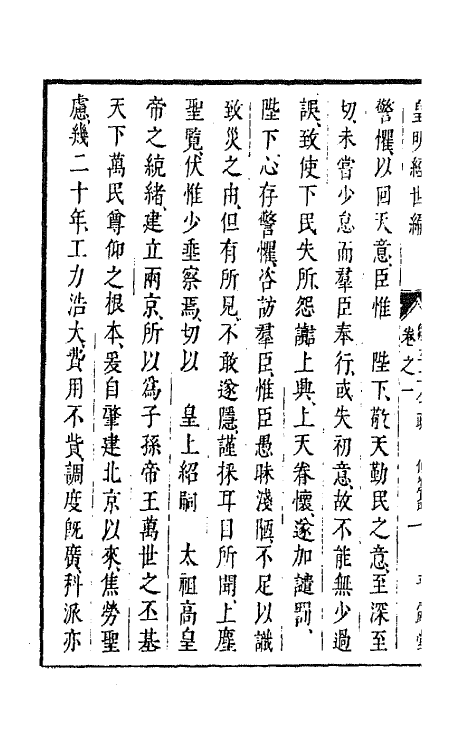 皇明經世編
卷之一
警懼、以回天意、臣惟 陛下、敬天勤民之意、至深至
切、未嘗少怠、而羣臣奉行、或失初意、故不能無少過
誤、致使下民失所、怨讟上興、上天眷懷、遂加譴罰、
陛下、心存警懼、咨訪羣臣、惟臣愚昧淺陋、不足以識
致災之由、但有所見、不敢遂隱、謹採耳目所聞、上塵
聖覽、伏惟少垂察焉、切以 皇上紹嗣 太祖高皇
帝之統緒、建立兩京、所以爲子孫帝王萬世之丕基
天下萬民尊仰之根本、爰自肇建北京以來、焦勞聖
慮、幾二十年、工力浩大、費用不貲、調度旣廣、科派亦